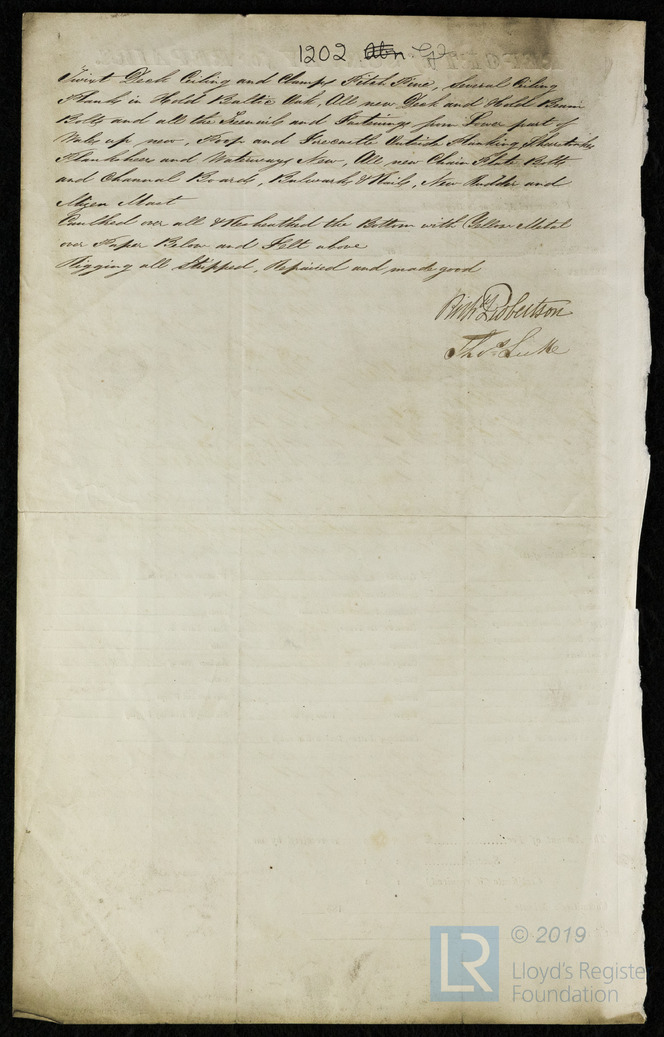 1202 Abn
Twixt Deck Ceiling and Clamps Pitch Pine, Several Ceiling
Planks in Hold Baltic Oak, All new Deck and Hold Beam
Bolts and all the Treenails and Fastenings from Lower part of
Wales up new, Poop and Forecastle Outside Planking, Sheerstrakes
Planksheer and Waterways New, All new Chain Plate Bolts
and Channel Boards, Bulwarks & Rails, New Rudder and
Mizen Mast
Caulked over all & Resheathed the Bottom with Yellow Metal
over Paper Below and Felt above
Rigging all Stripped, Repaired and made good
Robertson
Thos Luke
LR © 2019
Lloyd's Register
Foundation